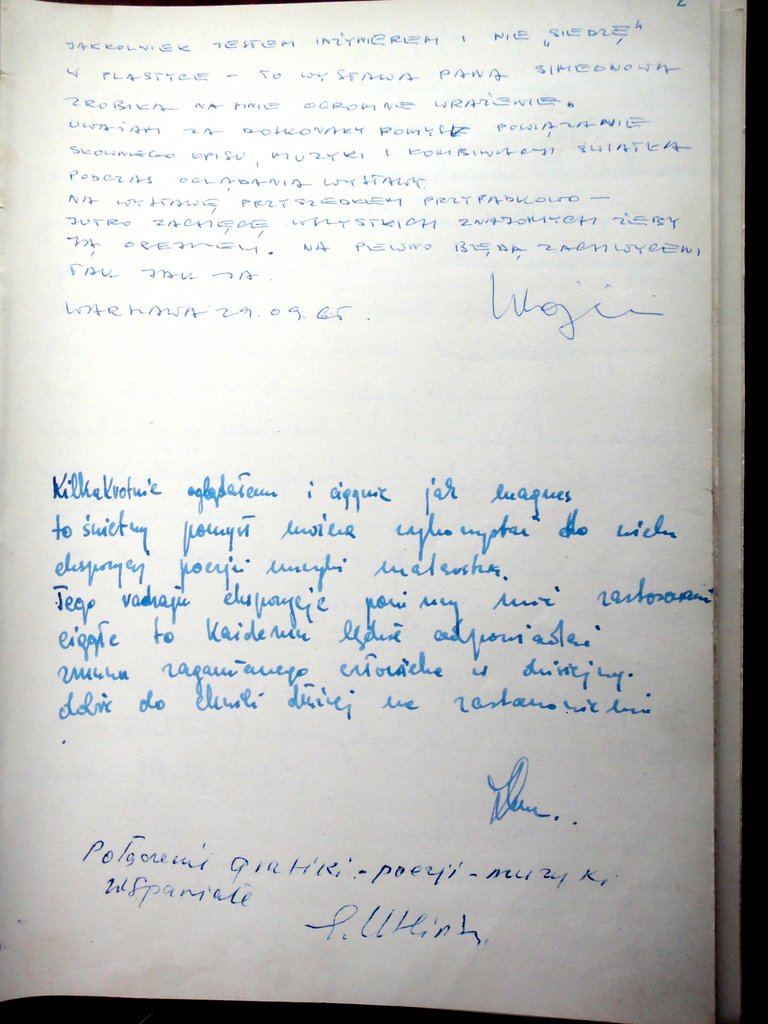 2
JAKKOLWIEK JESTEM INŻYNIEREM I NIE „SIEDZĘ"
W PLASTYCE – TO WYSTAWA PANA SIMEONOWA
ZROBIŁA NA MNIE OGROMNE WRAŻENIE.
UWAŻAM ZA DOSKONAŁY POMYSŁ POWIĄZANIE
SŁOWNEGO OPISU, MUZYKI I KOMBINACJI ŚWIATŁA
PODCZAS OGLĄDANIA WYSTAWY.
NA WYSTAWĘ PRZYSZEDŁEM PRZYPADKOWO –
JUTRO ZACHĘCĘ WSZYSTKICH ZNAJOMYCH ŻEBY
JĄ OBEJRZELI. NA PEWNO BĘDĄ ZACHWYCENI
TAK JAK JA.
WARSZAWA 29.09.65.
Kilkakrotnie oglądałem i ciągnie jak magnes
to świetny pomysł można wykorzystać do wielu
ekspozycji poezji muzyki malarstwa.
Tego rodzaju ekspozycje powinny mieć zastosowanie
ciągle to każdemu będzie odpowiadać
zaganianego człowieka w dzisiejszej
dobie do chwili dłużej na zastanowienie
Połączenie grafiki - poezji - muzyki
wspaniałe